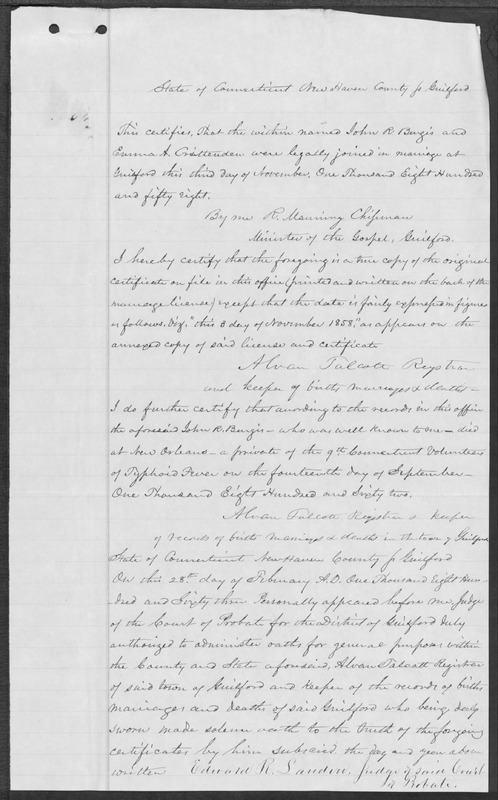 State of Connecticut New Haven County ss Guilford
This certifies, That the within named John R. Burgis and
Emma A. Crittenden were legally joined in mariage at
Guilford this third day of November, One Thousand Eight Hundred
and fifty eight.
By me R. Manning Chipman
Minister of the Gospel, Guilford.
I hereby certify that the foregoing is a true copy of the original
certificate on file in this office (printed and written on the back of the
marriage license) except that the date is fairly expressed in figures
as follows. Viz, "this 3 day of November 1858," as appears on the
annexed copy of said license and certificate
Alvan Talcott Registrar
and keeper of births marriages & deaths -
I do further certify that according to the records in this office
the aforesaid John R. Burgis - who was well known to me - died
at New Orleans - a private of the 9th Connecticut Volunteers
of Typhoid Fever on the fourteenth day of September -
One Thousand Eight Hundred and Sixty two.
Alvan Talcott Registrar & keeper
of records of births marriages & deaths in the town of Guilford
State of Connecticut New Haven County ss Guilford
On this 28th day of February A.D. One Thousand Eight Hun-
-dred and Sixty three Personally appeared before me Judge
of the Court of Probate for the district of Guilford duly
authorized to administer oaths for general purposes within
the County and State aforesaid, Alvan Talcott Registrar
of said town of Guilford and keeper of the records of births
marriages and deaths of said Guilford who being duly
sworn made solemn oath to the truth of the foregoing
certificates by him subscribed the day and year above
written Edward R. Landon, Judge of said Court
of Probate.